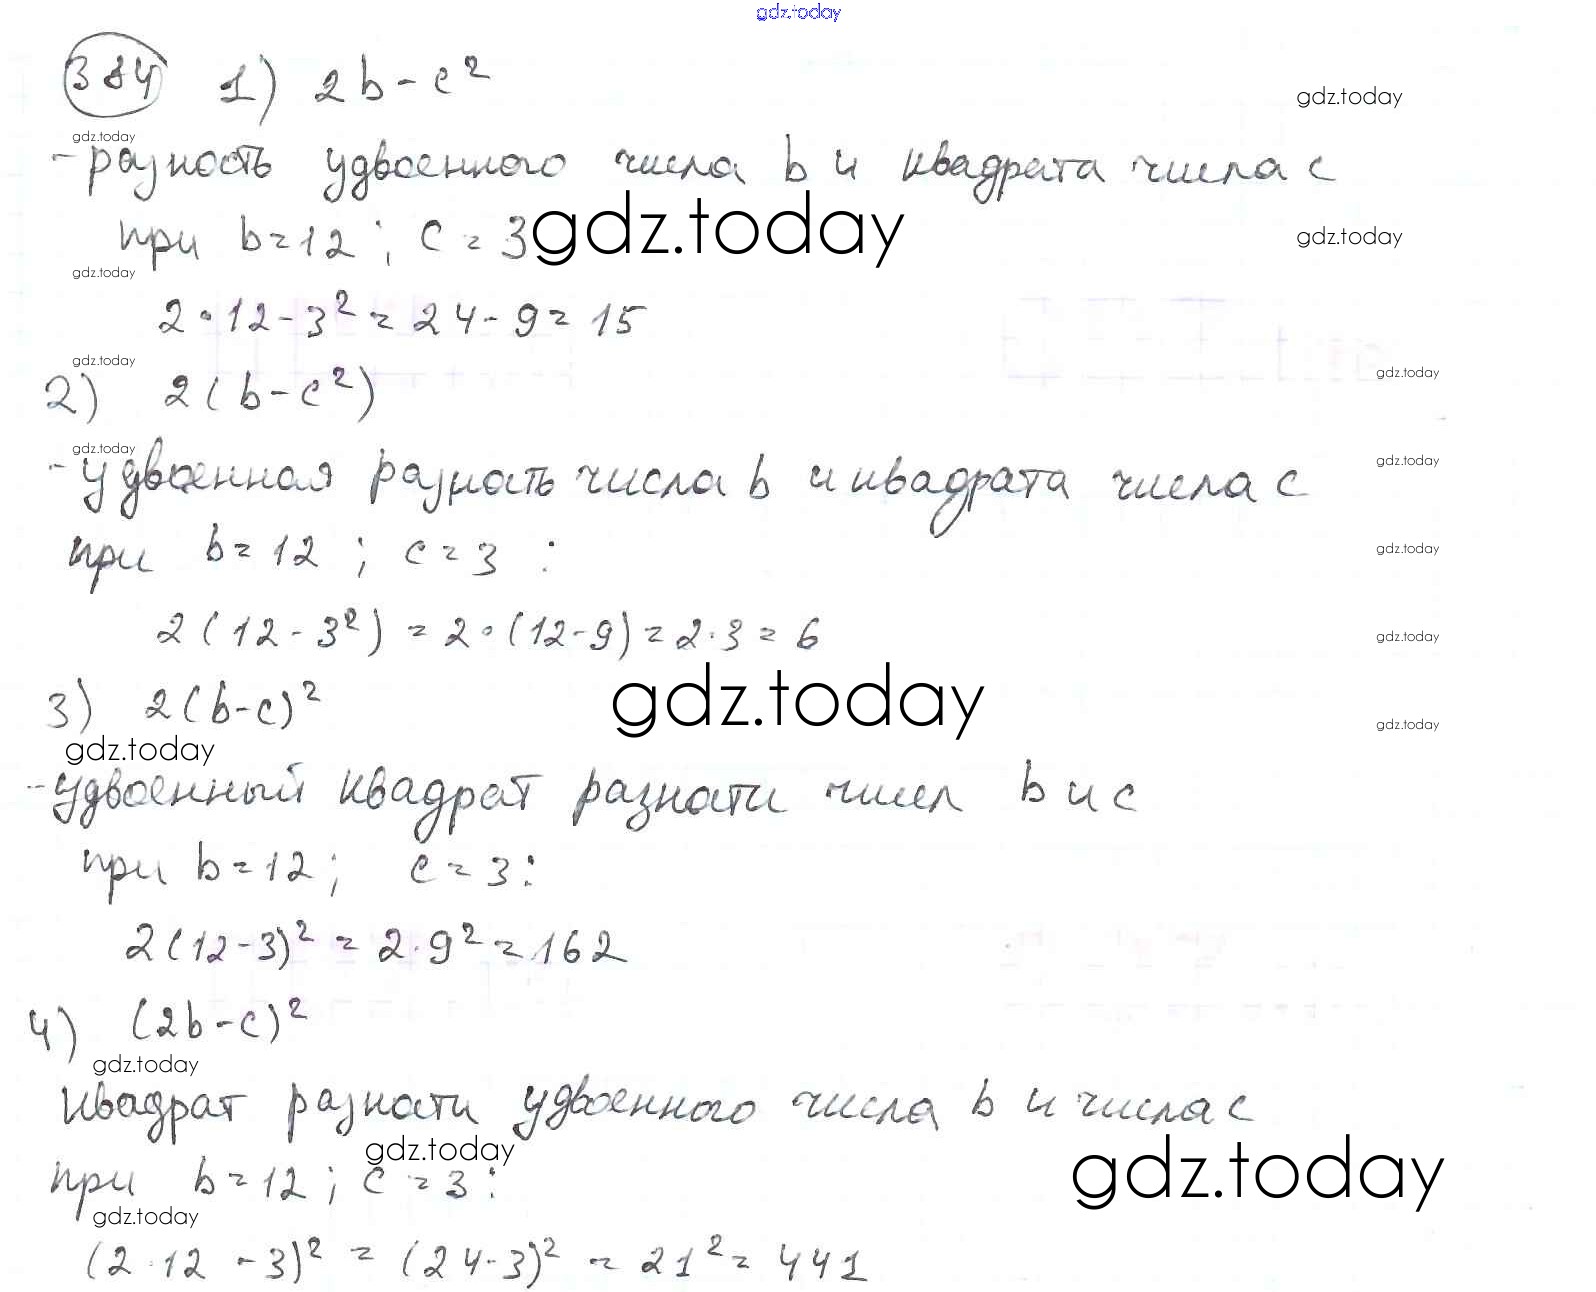 gdz.today
384 1) 2b-c²
gdz.today
gdz.today
- разность удвоенного числа b и квадрата числа c
при b=12; c=3
gdz.today
gdz.today
gdz.today
2·12-3²=24-9=15
gdz.today
gdz.today
2) 2(b-c²)
gdz.today
gdz.today
- удвоенная разность числа b и квадрата числа c
при b=12; c=3:
gdz.today
2(12-3²)=2·(12-9)=2·3=6
gdz.today
3) 2(b-c)²
gdz.today
gdz.today
gdz.today
- удвоенный квадрат разности чисел b и c
при b=12; c=3:
2(12-3)²=2·9²=162
4) (2b-c)²
gdz.today
квадрат разности удвоенного числа b и числа c
gdz.today
gdz.today
при b=12; c=3:
gdz.today
(2·12-3)²=(24-3)²=21²=441